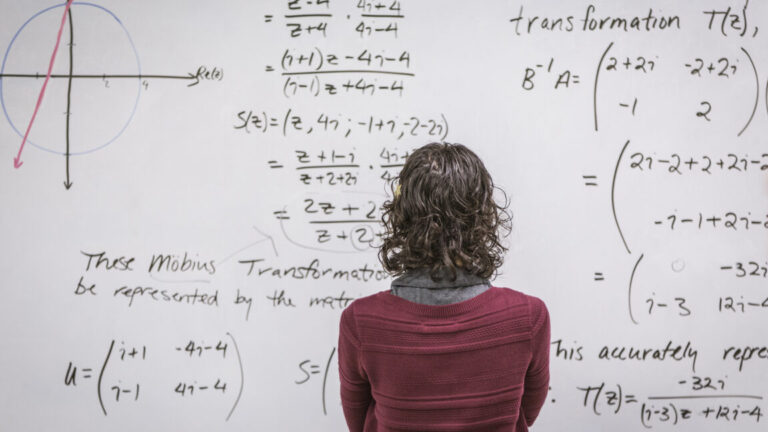 Re(z)
2 4
z+4 4i-4
= (i+1)z-4i-4
(i-1)z+4i-4
S(z)=(z, 4i; -1+i, -2-2i)
= z+1-i
z+2+2i
= 2z+2
z+2
These Möbius Transformatio
be represented by the matri
u= i+1 -4i-4
i-1 4i-4
S=
transformation T(z),
B⁻¹A= 2+2i -2+2i
-1 2
= 2i-2+2+2i-2
-i-1+2i-2
= -32i
i-3 12i-4
his accurately repre
T(z)= -32i
(i-3)z+12i-4